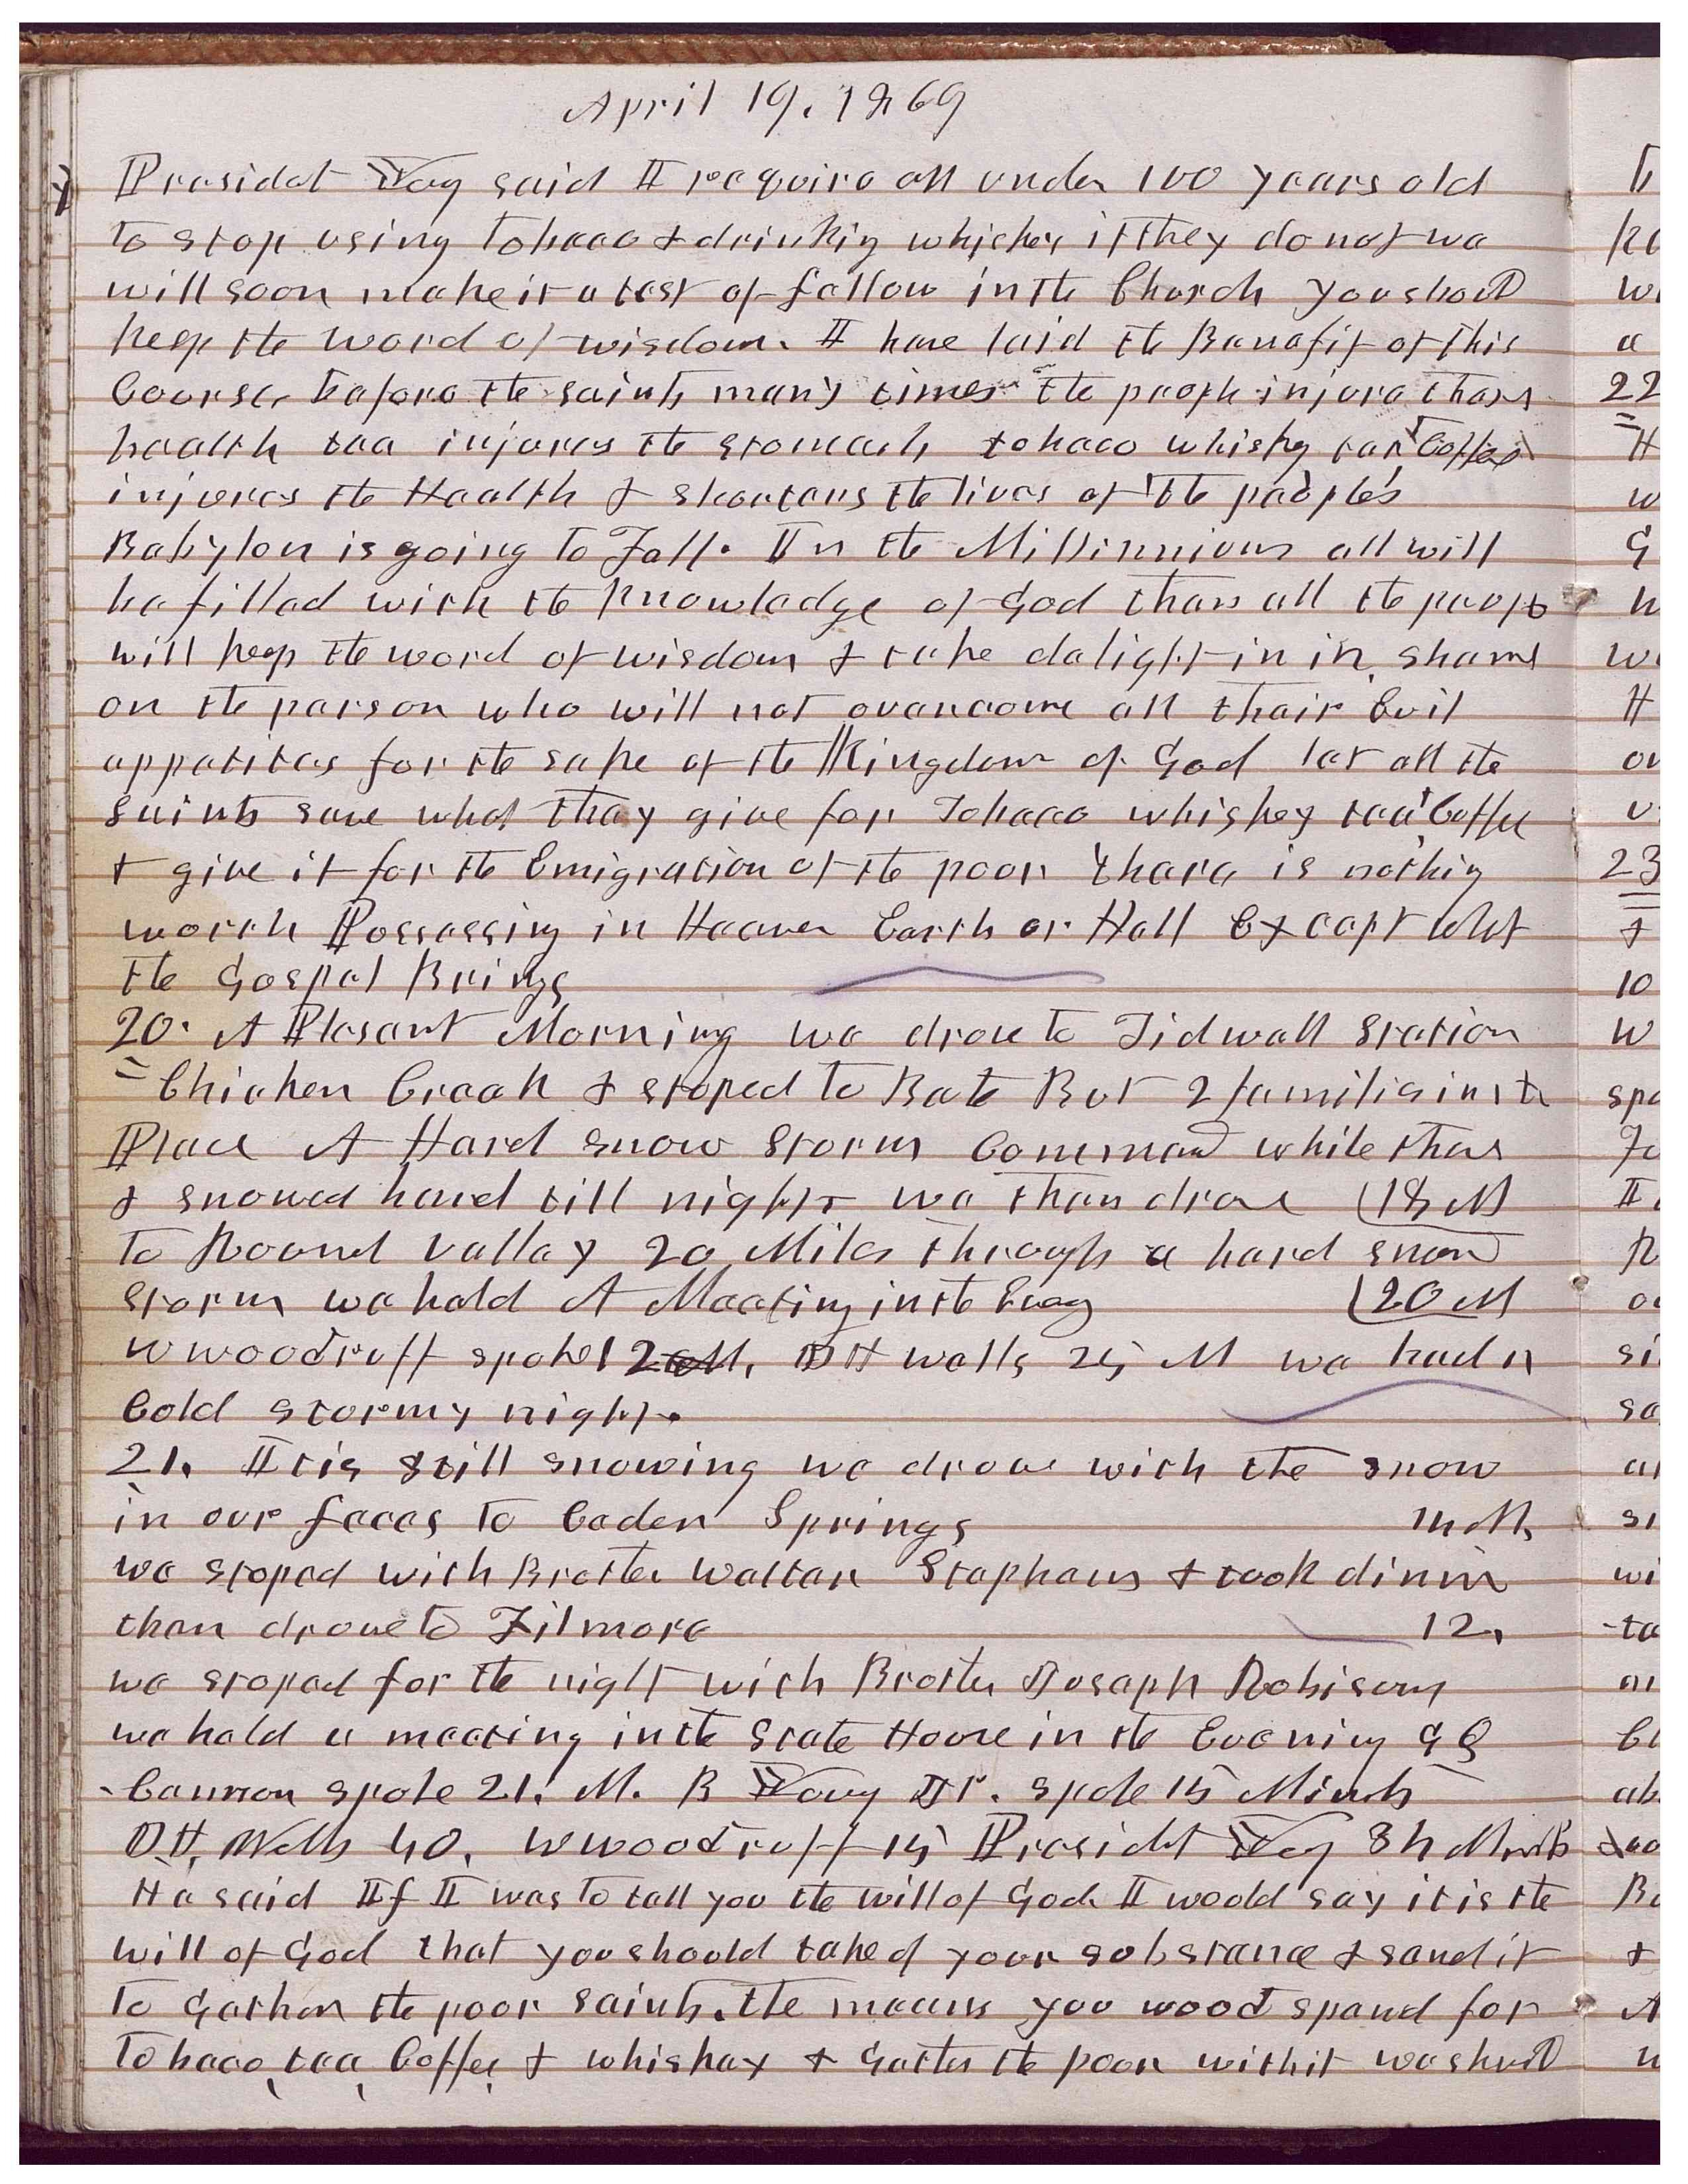 April 19, 1869
Presidet Yog said I require all under 100 years old
to stop using Tobaco & drinkig whiskey if they do not we
will soon make it a test of fellow in the Church you shoud
keep the word of wisdom. I have laid the Banefit of this
Course before the saints many times the people injure thair
health tea injures the stomach tobaco whisky tea & Coffee
injures the Health & shortens the lives of the people
Babylon is going to Fall. In the Millinnium all will
be filled with the knowledge of God then all the people
will keep the word of wisdom & take delight in it, shame
on the person who will not overcome all their Evil
appetites for the sake of the Kingdom of God let all the
Saints save what they give for Tobacco whiskey tea & Coffee
& give it for the Emigration of the poor there is nothig
worth Possessing in Heaven Earth or Hell Except what
the Gospel Brings
20. A Plesant Morning we drove to Tidwell Station
Chicken Creek & stoped to Bate But 2 families in th
Place A Hard snow Storm Commenced while thare
& snowed hard till night we then drove 18 M
to Round Valley 20 Miles through a hard snow
storm we held A Meeting in the Eveng 20 M
W Woodruff spoke 12 M, D H Wells 25 M we had a
Cold stormy night.
21. It is still snowing we drove with the snow
in our faces to Ceder Springs 14 M,
we stoped with Brother Walter Stephens & took dinner
then drove to Filmore 12,
we stoped for the night with Brother Joseph Robisony
we held a meeting in the State House in the Evening G Q
Cannon spoke 21. M. B Youg Jr. spoke 15 Minuts
D.H. Wells 40. W Woodruff 15 Presidet Yog 34 Minuts
He said If I was to tell you the will of God I would say it is the
will of God that you should take of your substance & send it
to Gather the poor saints. the means you wood spend for
Tobaco, tea, Coffee, & whiskey & Gather the poor with it we shoud